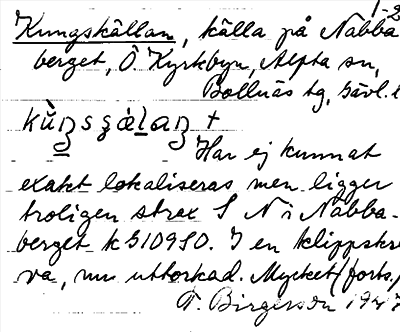 1-2
Kungskällan, källa på Nabba
berget, Ö. Kyrkbyn, Alfta sn,
Bollnäs tg, Gävl. l
Har ej kunnat
exakt lokaliseras men ligger
troligen strax S N i Nabba-
berget k 510950. I en klippskre
va, nu uttorkad. Mycket (forts.)
T. Birgerson 1947